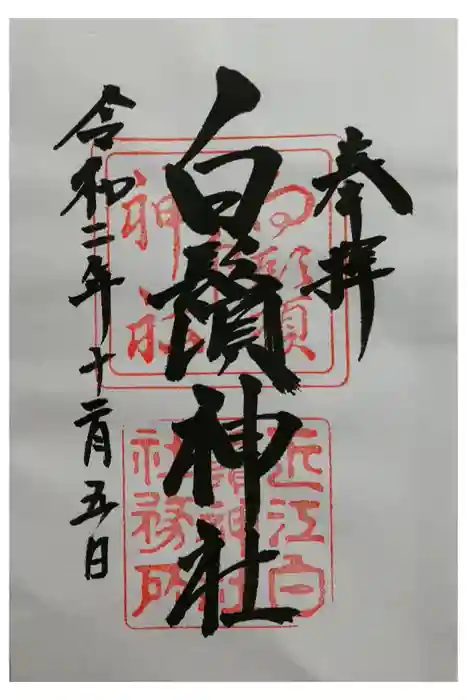 奉拝
白鬚神社
令和二年十二月五日
白鬚
神社
近江白
鬚神社
社務所